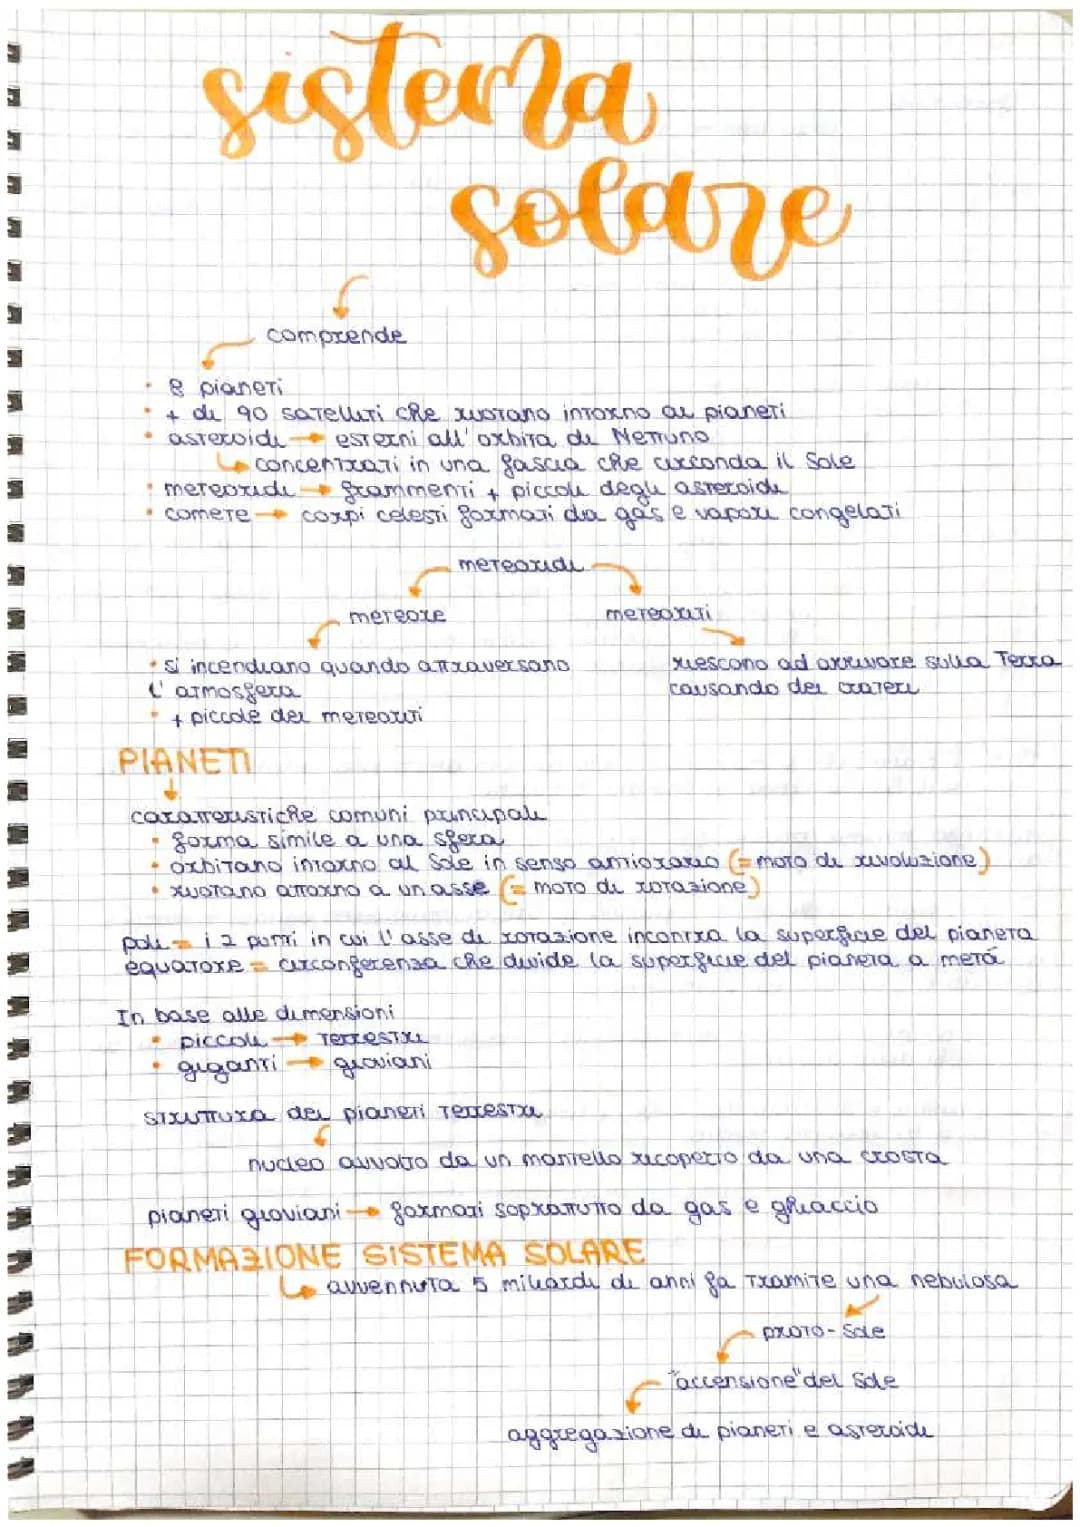 sistema
solare
comprende
• 8 pianeti
• + di 90 satelliti che ruotano intorno ai pianeti
• asteroidi → esterni all'orbita di Nettuno
↳ concentrati in una fascia che circonda il Sole
• meteoridi → frammenti + piccoli degli asteroidi
• comete → corpi celesti formati da gas e vapori congelati
meteoridi
meteore meteoriti
• si incendiano quando attraversano riescono ad arrivare sulla Terra
l'atmosfera causando dei crateri
• + piccole dei meteoriti
PIANETI
caratteristiche comuni principali
• forma simile a una sfera
• orbitano intorno al Sole in senso antiorario (= moto di rivoluzione)
• ruotano attorno a un asse (= moto di rotazione)
poli = i 2 punti in cui l'asse di rotazione incontra la superficie del pianeta
equatore = circonferenza che divide la superficie del pianeta a metá
In base alle dimensioni
• piccoli → terrestri
• giganti → gioviani
struttura dei pianeti terrestri
nucleo avvolto da un mantello ricoperto da una crosta
pianeti gioviani → formati sopratutto da gas e ghiaccio
FORMAZIONE SISTEMA SOLARE
↳ avvennuta 5 miliardi di anni fa tramite una nebulosa
proto-Sole
"accensione" del Sole
aggregazione di pianeti e asteroidi